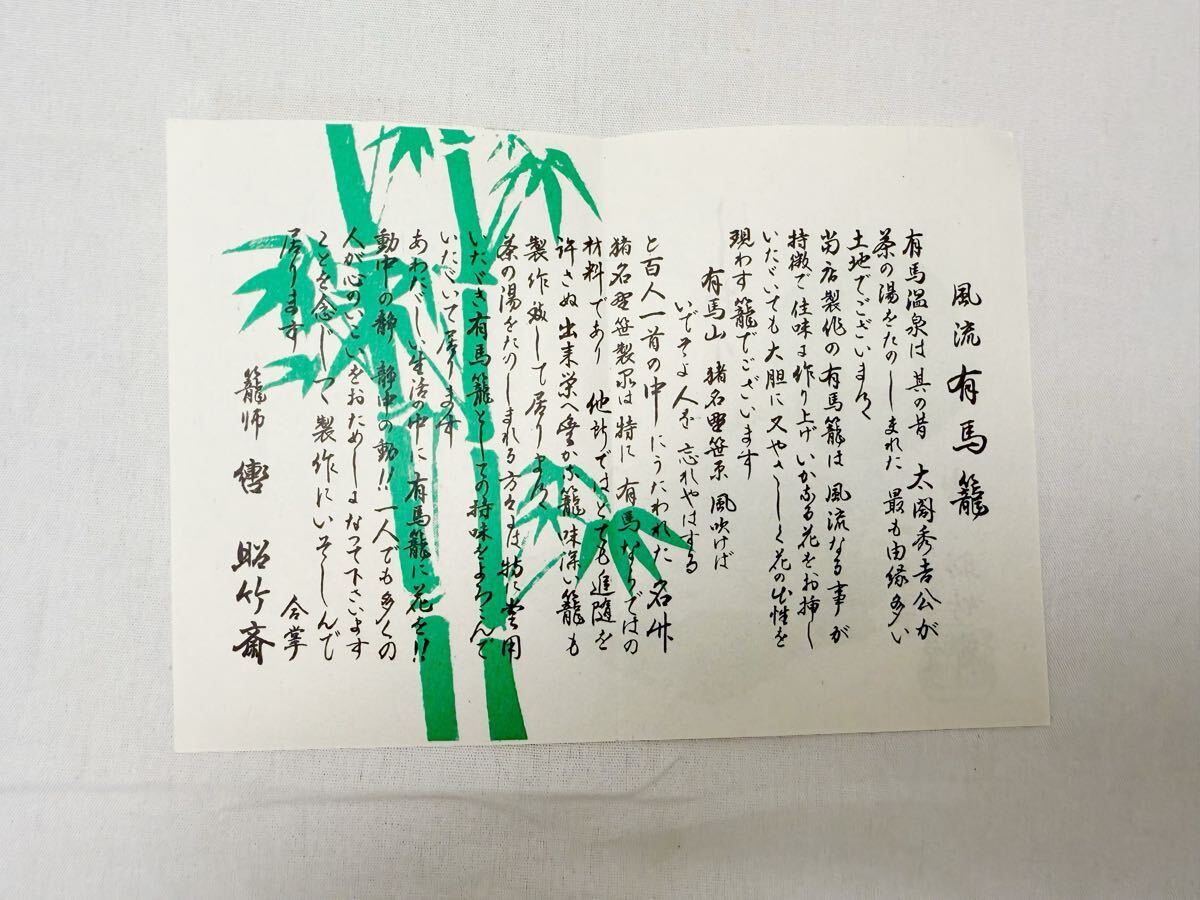 風流 有馬籠
有馬温泉は其の昔 太閤秀吉公が
茶の湯をたのしまれた 最も由縁多い
土地でございます
当店製作の有馬籠は 風流なる事が
特徴で 佳味に作り上げ いかなる花をお挿し
いただいても大胆に 又やさしく 花の性を
現わす籠でございます
有馬山 猪名野笹原 風吹けば
いでそよ人を 忘れやはする
と百人一首の中にうたわれた 名竹
猪名野笹製品は特に 有馬ならではの
材料であり 他所ではとても追随を
許さぬ 出来栄へ豊かな籠 味深い籠も
製作致して居ります
茶の湯をたのしまれる方々には 特に愛用
いただき有馬籠としての持味をよろこんで
いただいて居ります
あわただしい生活の中に 有馬籠に花を!!
動中の静 静中の動!! 一人でも多くの
人が心のいこいをおためしになって下さいます
ことを念じつつ 製作にいそしんで
居ります 合掌
籠師 轡 昭竹斎